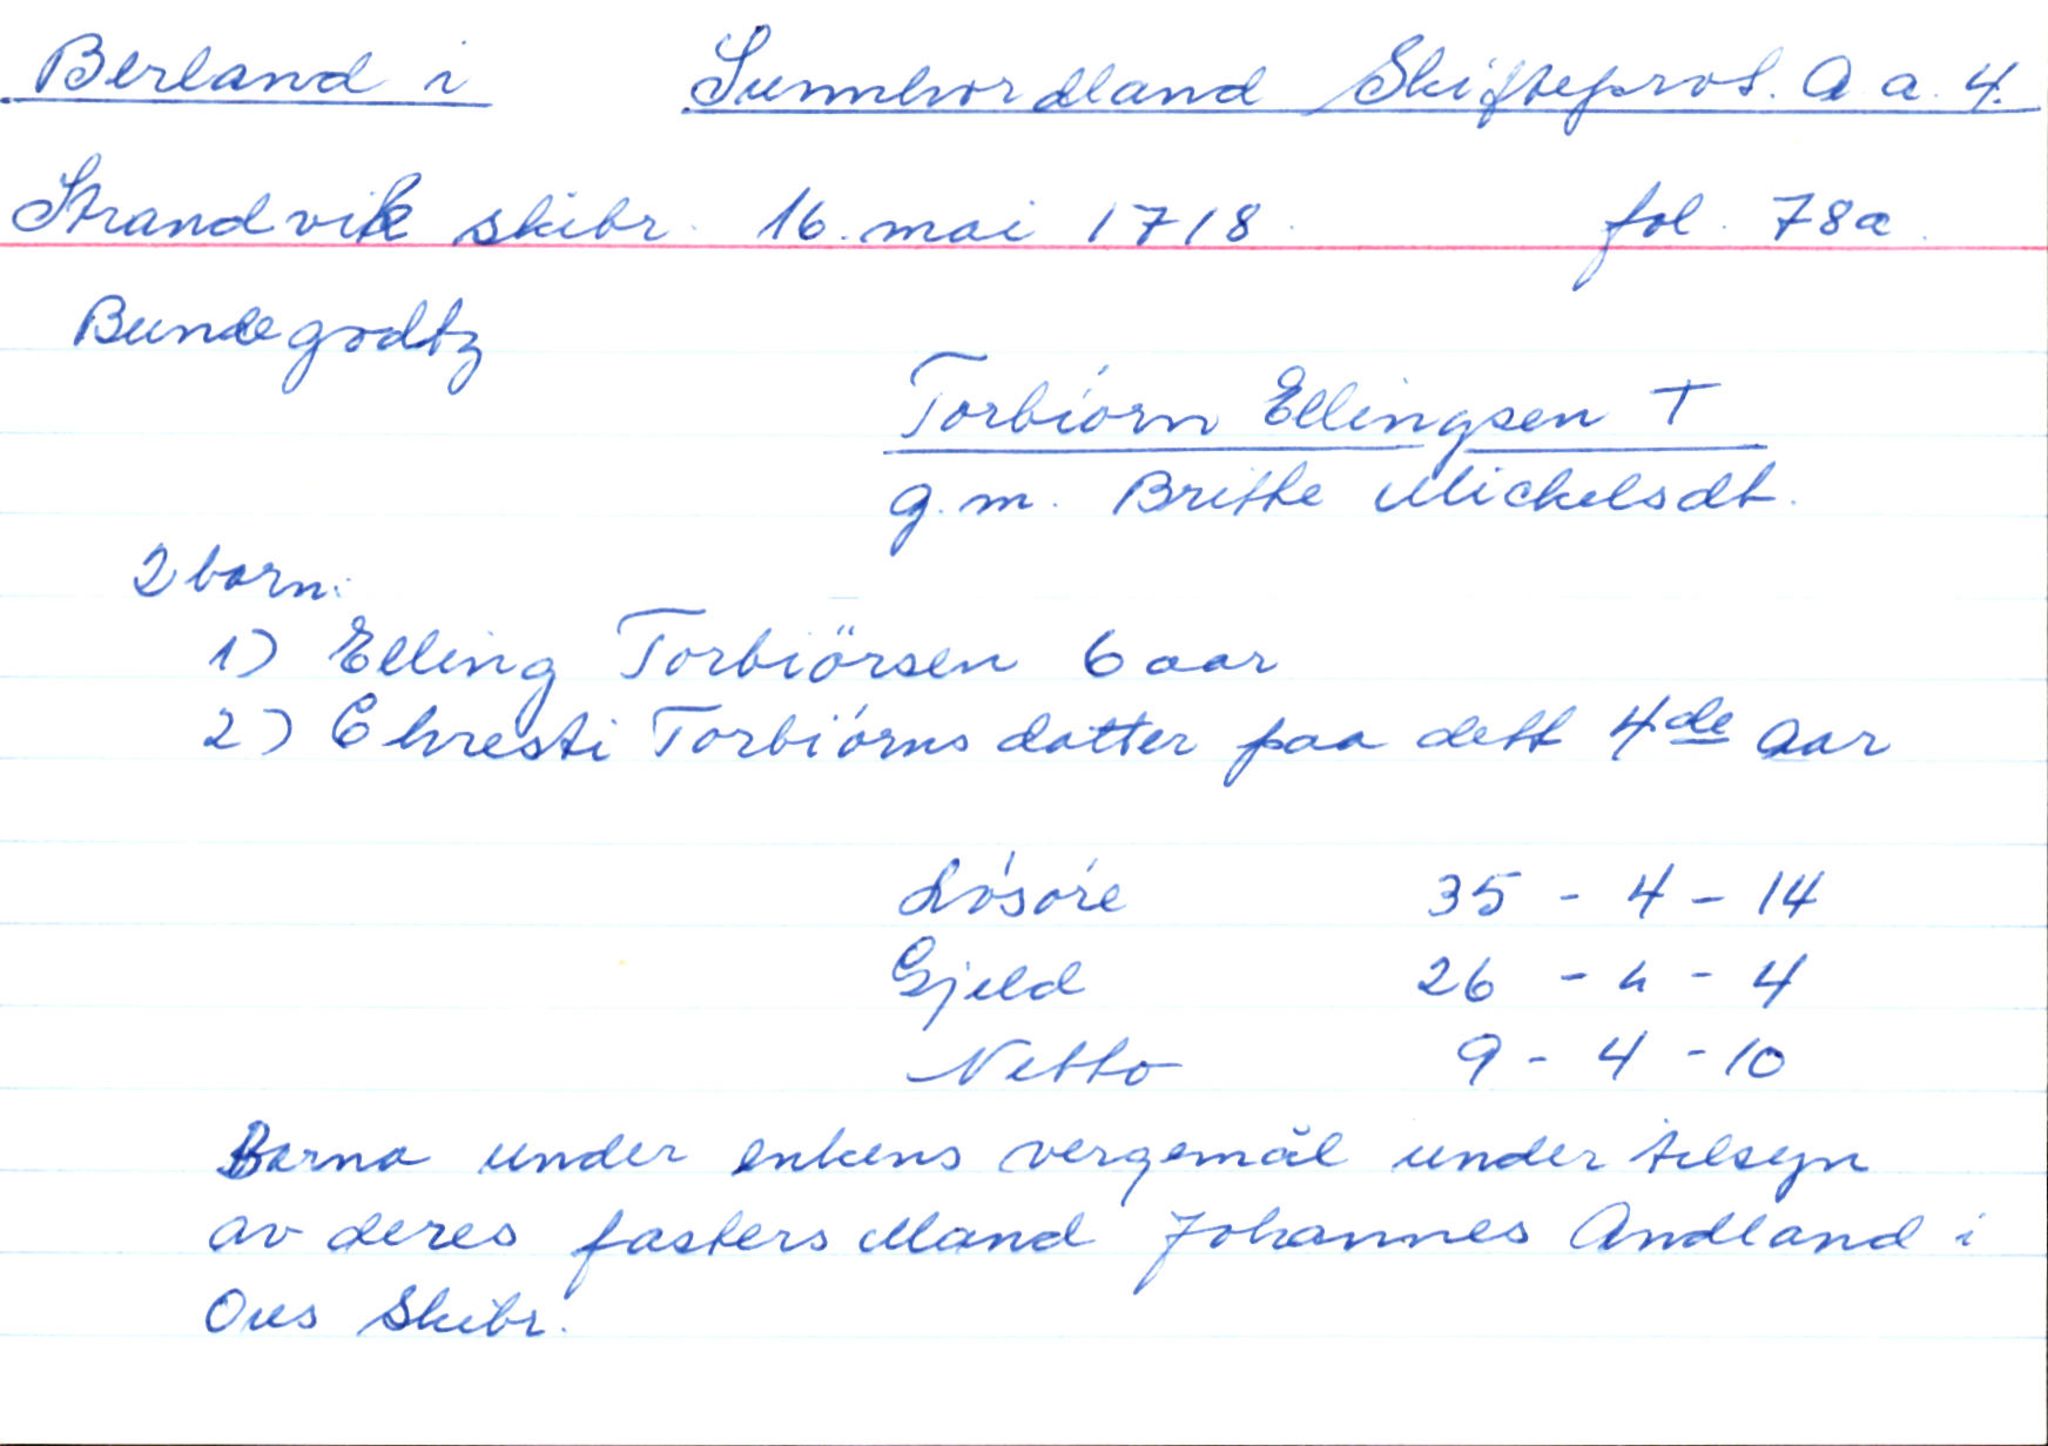 Berland i Sunnhordland Skifteprot. A a. 4.
Strandvik skibr. 16. mai 1718. fol. 78a.
Bundegodtz
Torbiórn Ellingsen †
g.m. Britte Mickelsdt.
2 born:
1) Elling Torbiörsen 6 aar
2) Chresti Torbiórns datter paa dett 4de aar
Lósóre 35 - 4 - 14
Gjeld 26 - " - 4
Netto 9 - 4 - 10
Borna under enkens vergemål under tilsyn
av deres fasters Mand Johannes Andland i
Ous Skibr.